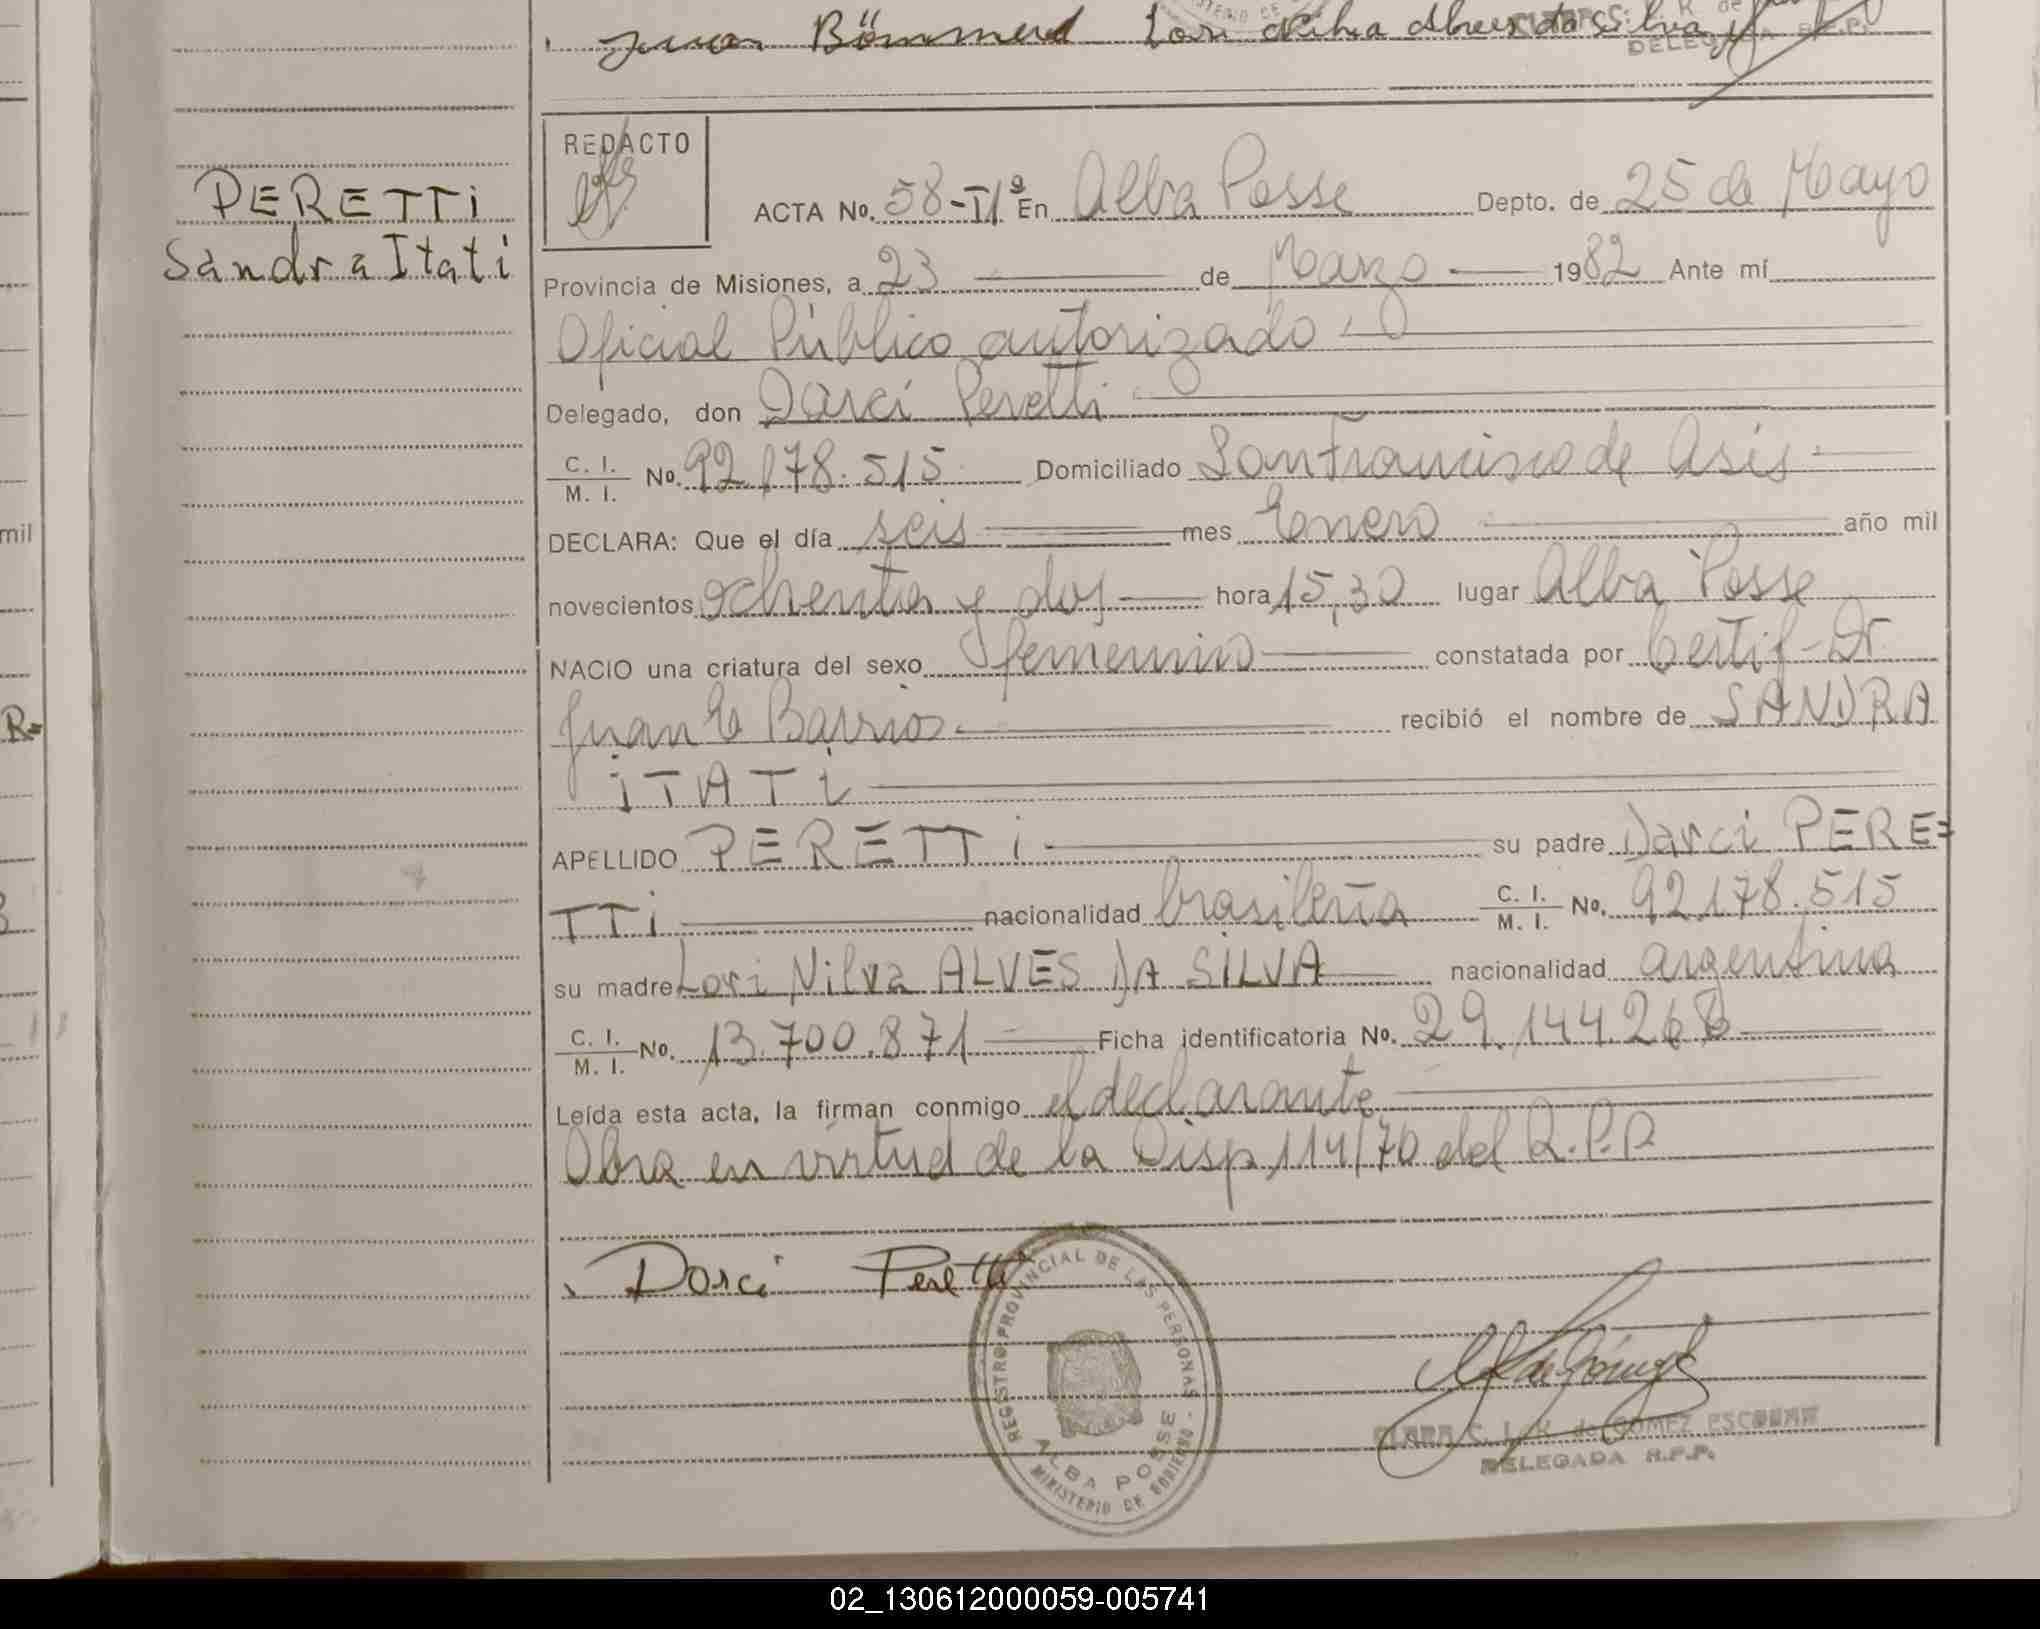 Juan Bömmerd Lori Nilva Alves da Silva
DELEGADA R.P.P.
PERETTI
Sandra Itati
REDACTO
ACTA No. 58-Tº1º En Alba Posse Depto. de 25 de Mayo
Provincia de Misiones, a 23 de Marzo 1982 Ante mí
Oficial Público autorizado
Delegado, don Darci Peretti
C. I. / M. I. No. 92.178.515 Domiciliado San Francisco de Asis
DECLARA: Que el día seis mes Enero año mil
novecientos ochenta y dos hora 15,30 lugar Alba Posse
NACIO una criatura del sexo femenino constatada por Certif-Dr.
Juan E Barrios recibió el nombre de SANDRA
ITATI
APELLIDO PERETTI su padre Darci PERE=
TTI nacionalidad brasileña C. I. / M. I. No. 92.178.515
su madre Lori Nilva ALVES DA SILVA nacionalidad argentina
C. I. / M. I. No. 13.700.871 Ficha identificatoria No. 29.144.268
Leída esta acta, la firman conmigo el declarante
Obra en virtud de la Disp. 114/70 del R.P.P
Darci Peretti
REGISTRO PROVINCIAL DE LAS PERSONAS - ALBA POSSE
MINISTERIO DE GOBIERNO
CLARA C. L. K. de GOMEZ ESCOBAR
DELEGADA R.P.P.
mil
R=
02_130612000059-005741